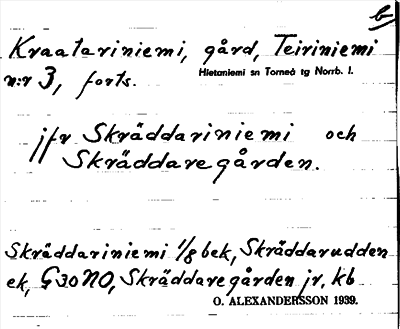 b
Kraatariniemi, gård, Teiriniemi
n:r 3, forts.
Hietaniemi sn Torneå tg Norrb. l.
jfr Skräddariniemi och
Skräddaregården.
Skräddariniemi 1/8 bek, Skräddarudden
ek, G30NO, Skräddaregården jr, kb
O. ALEXANDERSSON 1939.